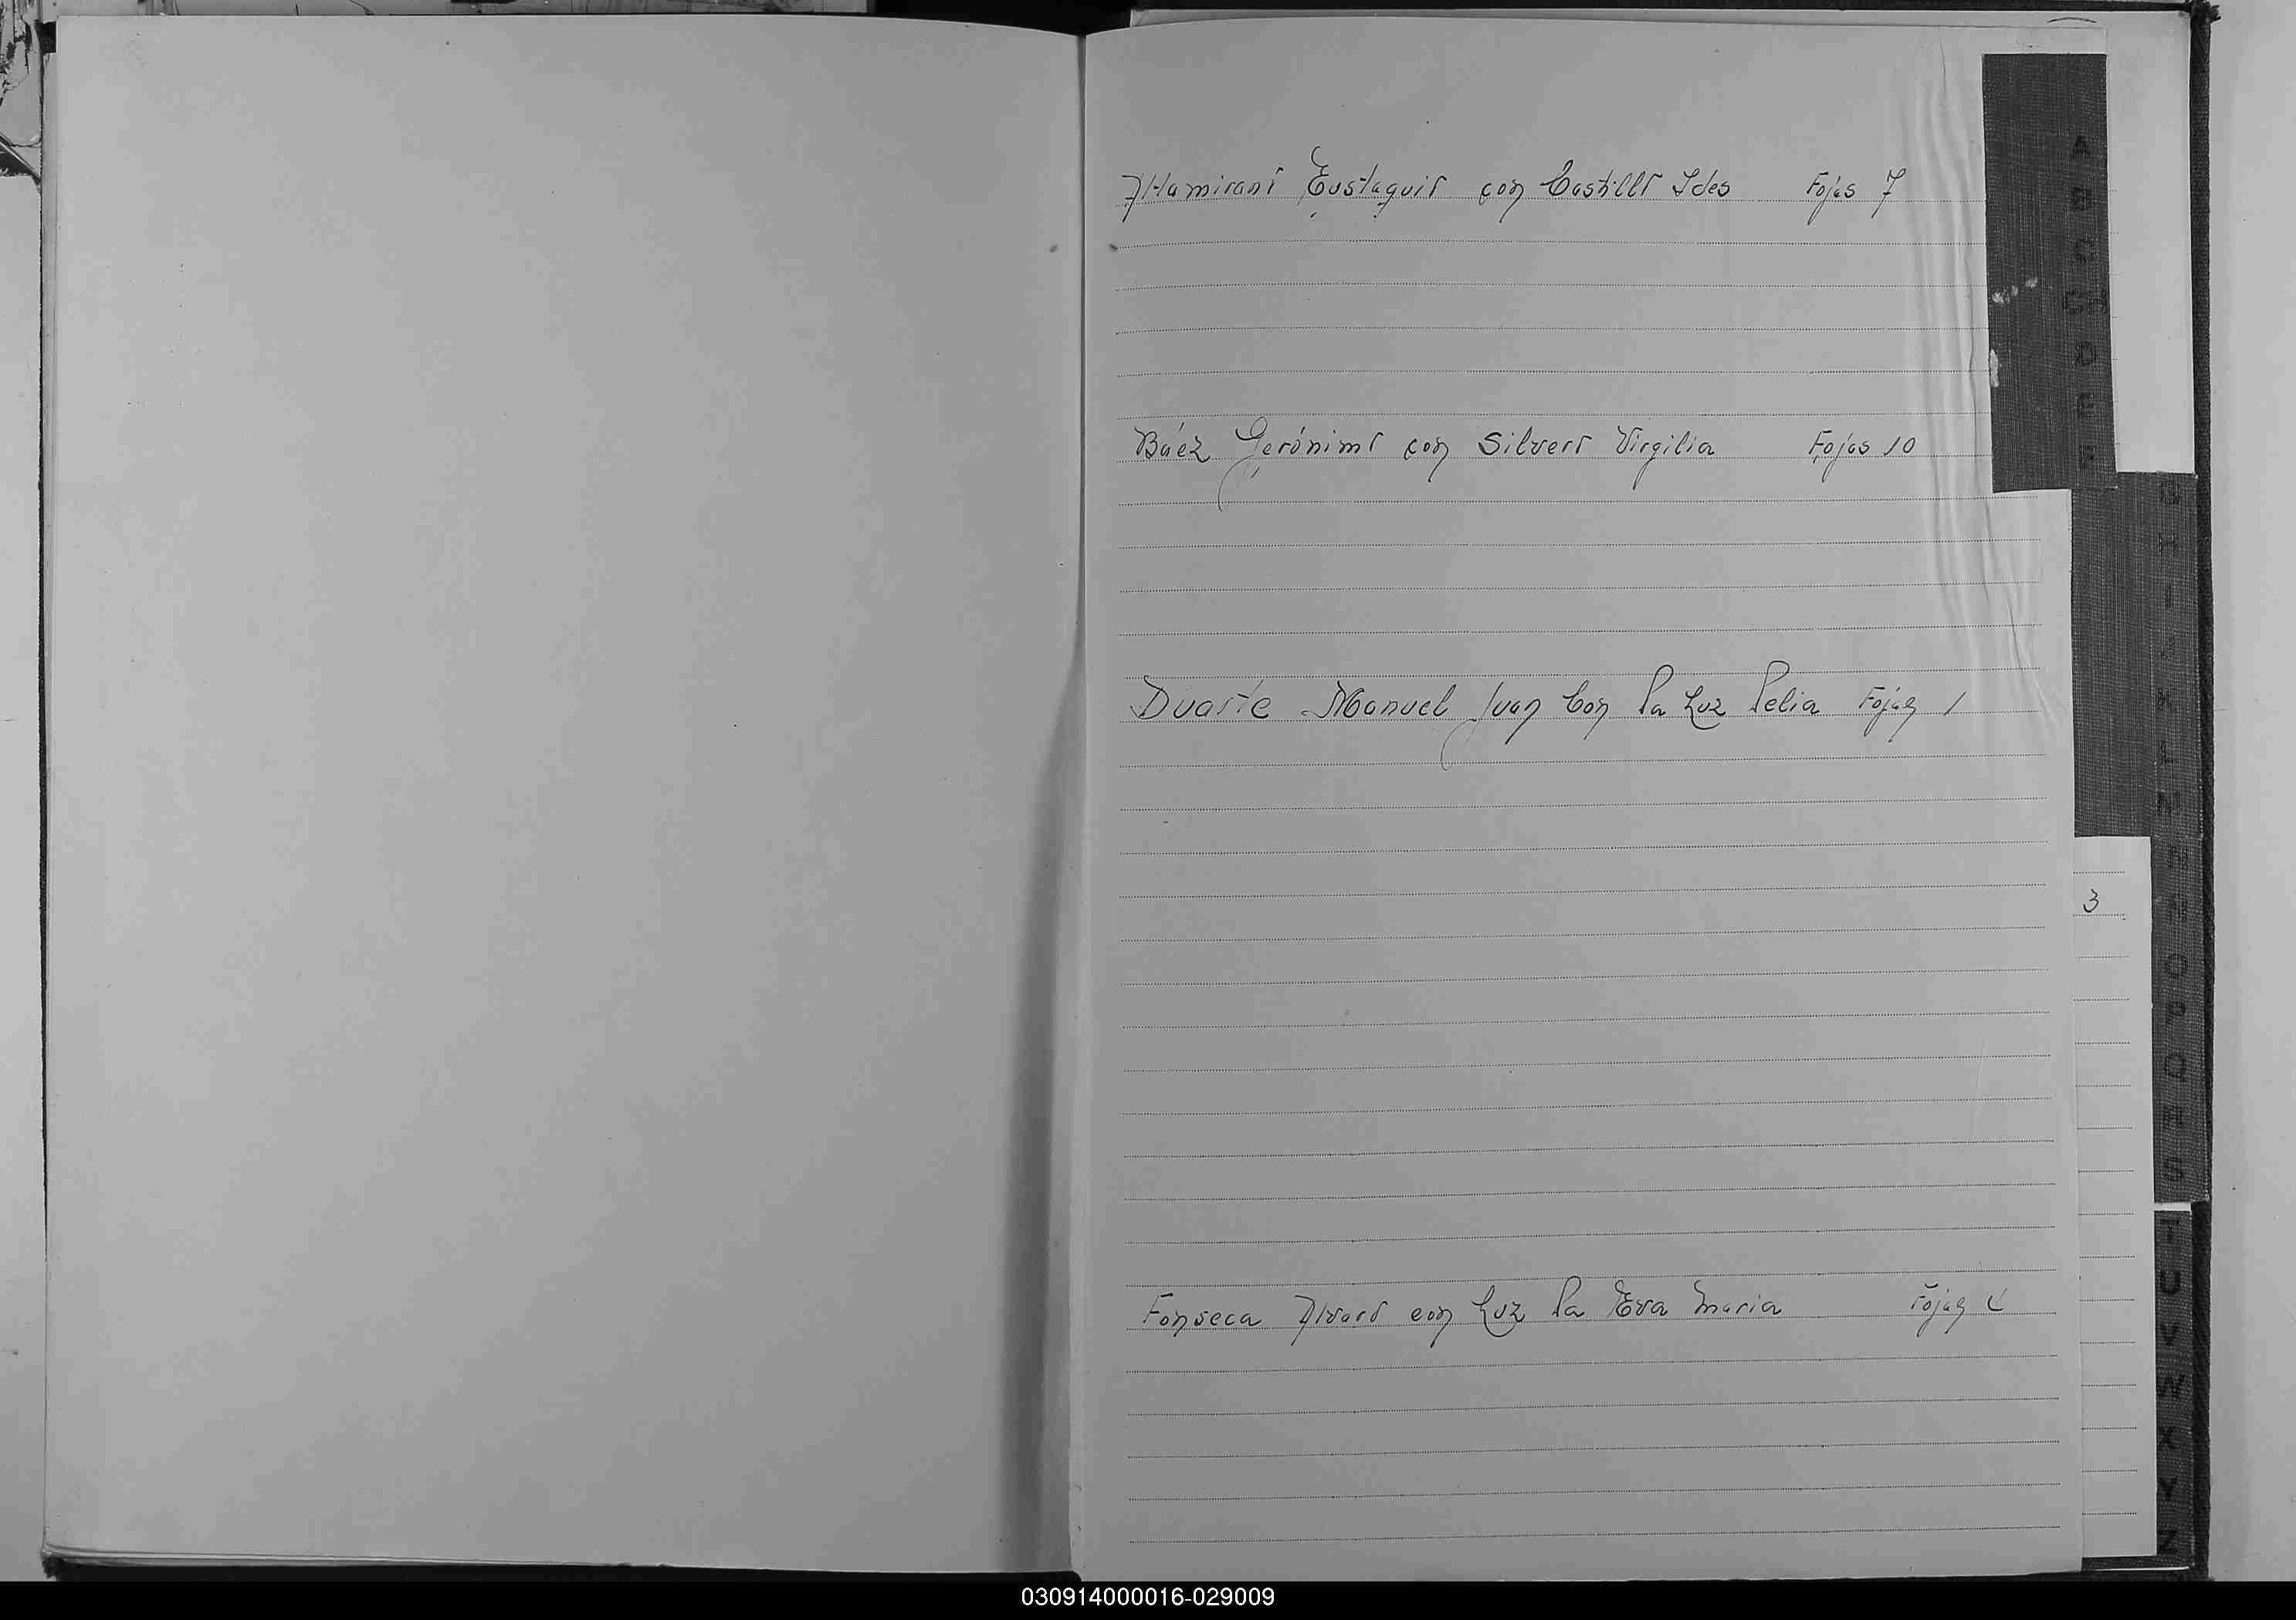 Altamirano Eustaquio con Castillo Ides Fojas 7
Báez Gerónimo con Silvero Virgilia Fojas 10
Duarte Manuel Juan Con La Luz Lelia Fojas 1
3
Fonseca Alvaro con Luz La Eva Maria Fojas
A
B
C
CH
D
E
F
G
H
I
J
K
L
M
N
Ñ
O
P
Q
R
S
T
U
V
W
X
Y
Z
030914000016-029009